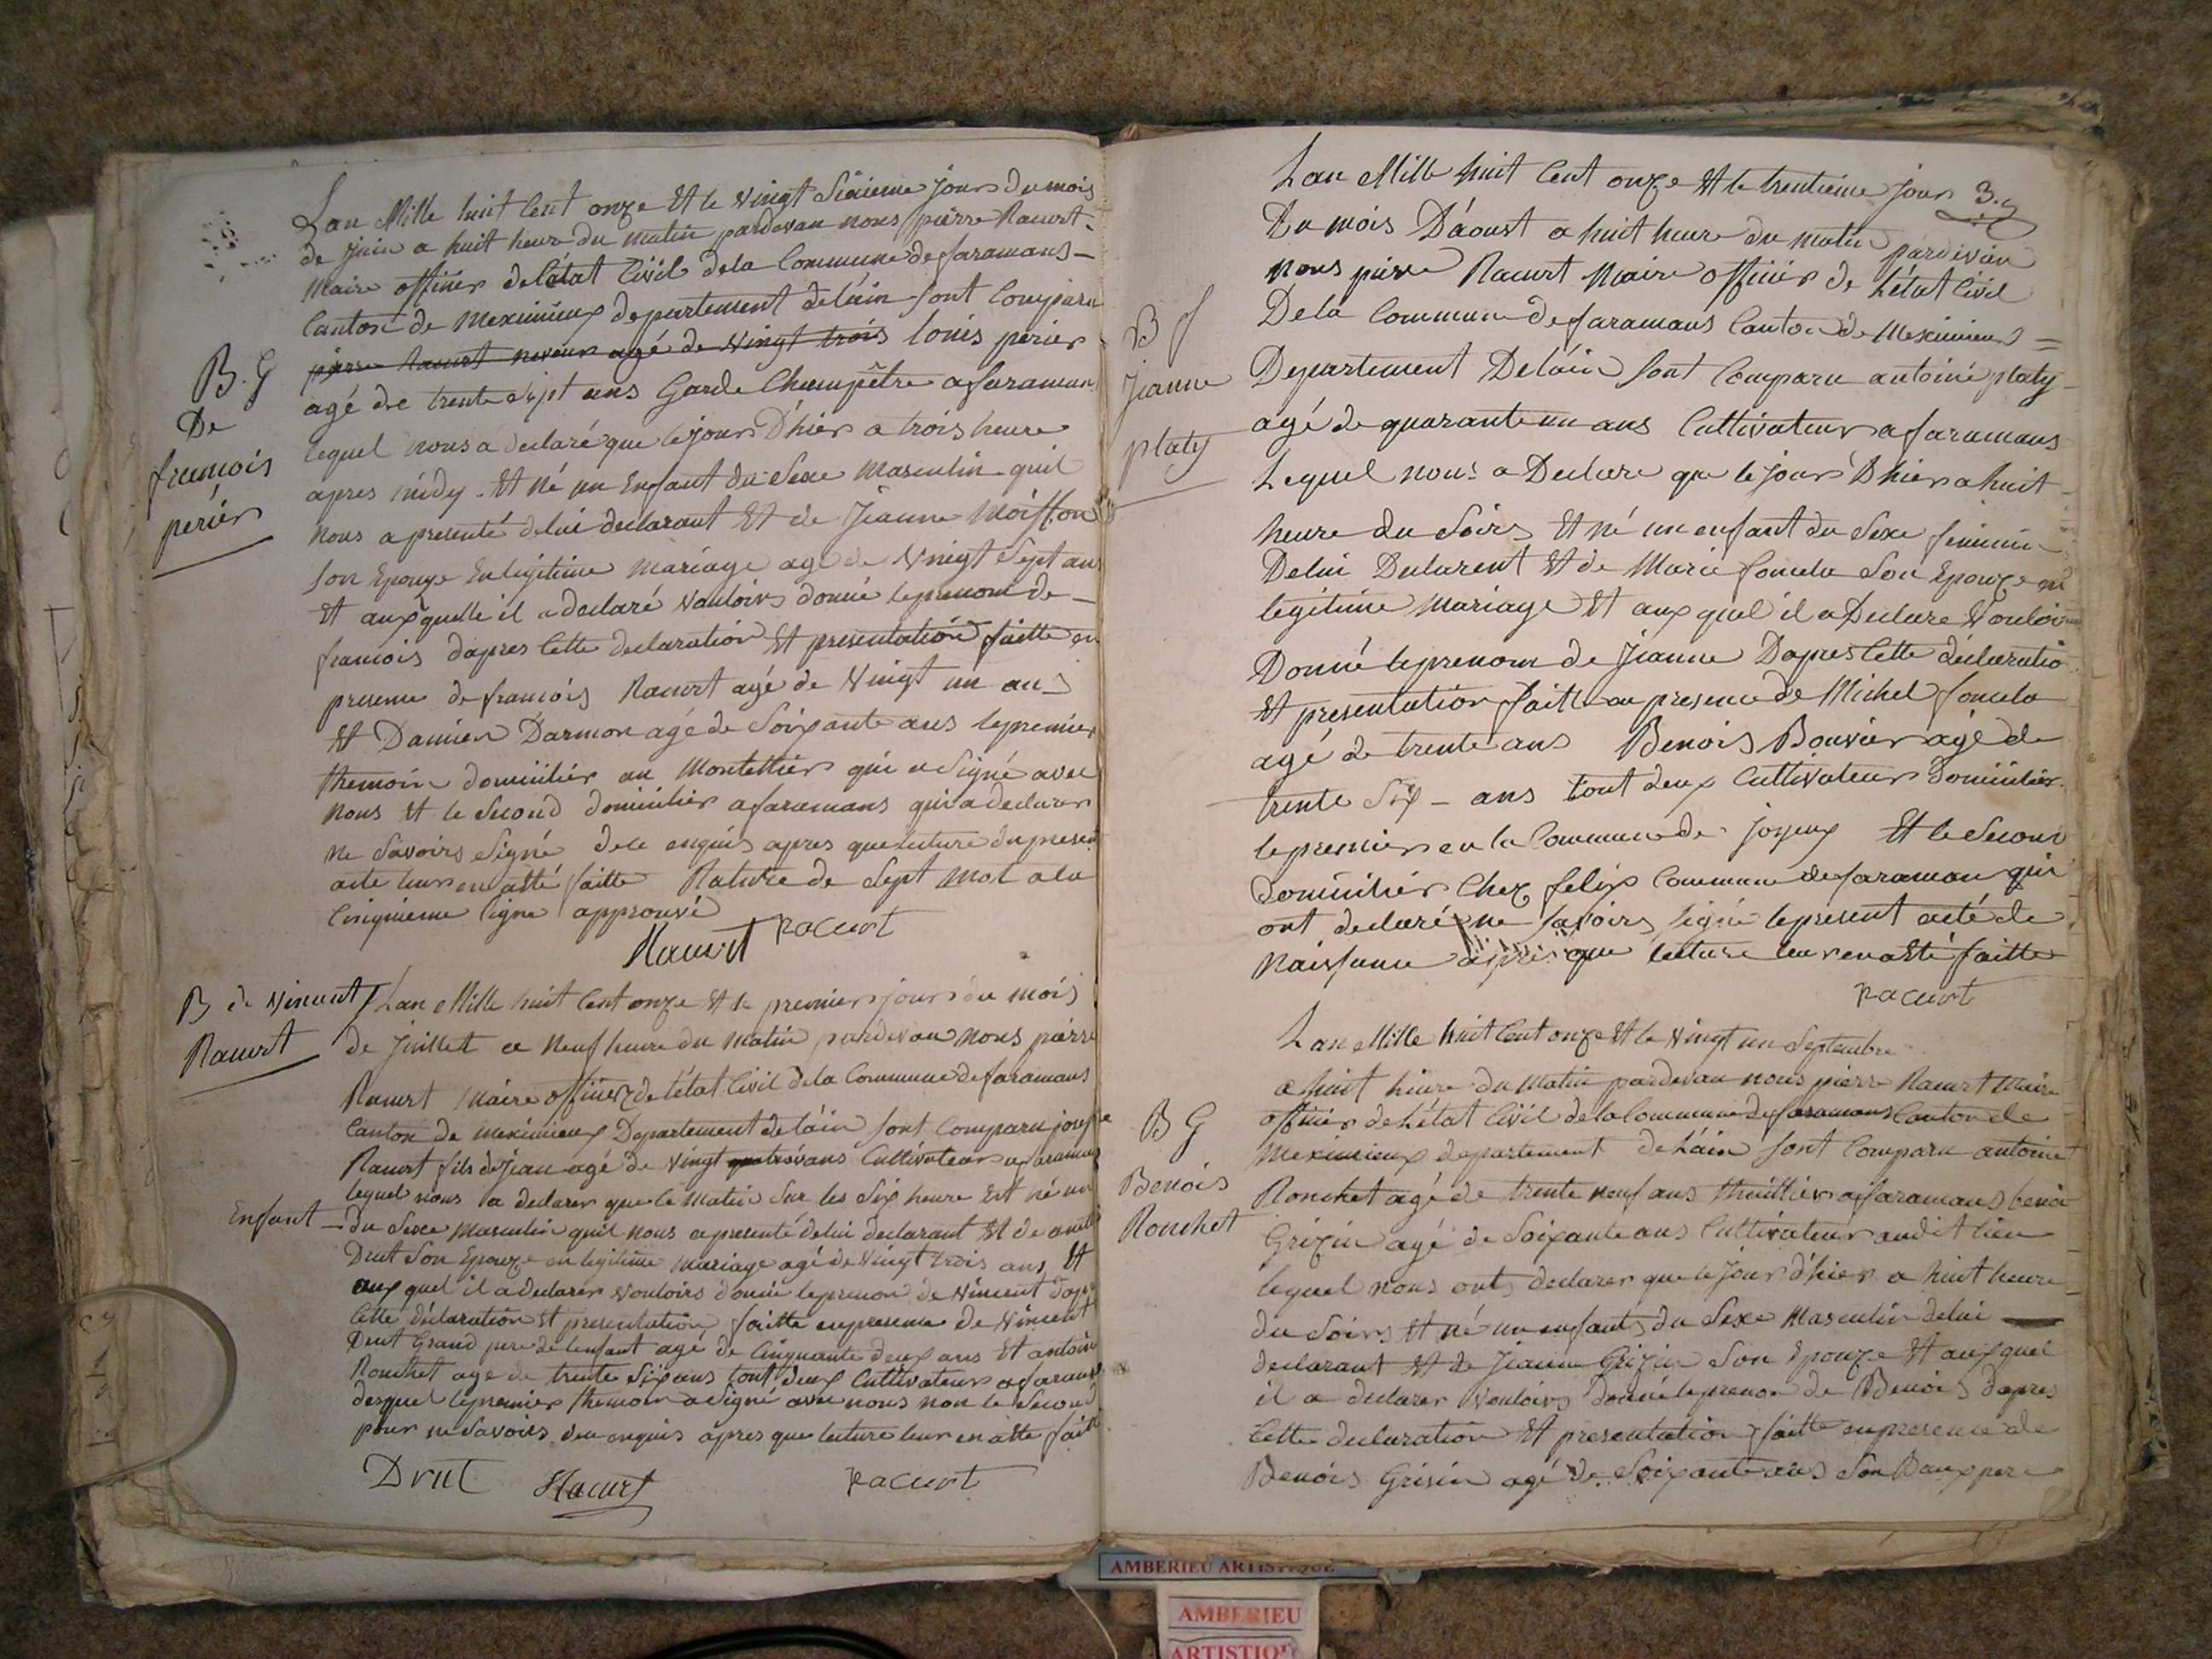 Lan Mille huit Cent onze Et le vingt Sixieme jours du mois
de juin a huit heur du matin pardevan nous pierre Racurt
Maire officier delétat Civil dela Commune defaramans
Canton de meximieux departement deláin Sont Comparu
pierre Racurt neveur agé de vingt trois louis perier
agé de trente Sept ans Garde Champêtre afaraman
lequel nous a declaré que lejours D'hier a trois heure
apres midy Et né un Enfant du Sexe Masculin quil
nous apresenté delui declarant Et de Jeanne Moisson
Son Epouze Enlegitime mariage agé de vingt Sept ans
Et auxquelle il adeclaré vouloirs donné leprenom de
francois dapres Cette declaration Et presentation faitte en
presence de francois Racurt agé de vingt un ans
Et Damien Darmon agé de Soixante ans lepremier
themoin domicilier au Montellier qui a Signé avec
nous Et le Second domicilier afaramans qui a declarer
ne Savoirs Signé dece enquis apres que lecture du present
acte leur en atté faitte Rature de Sept mot ala
Cinquieme ligne approuvé
Racurt racurt
B. G
De
francois
periér
B de vincent
Racurt
Lan Mille huit Cent onze Et le premier jours du mois
de juillet a neuf heure du matin pardevan nous pierre
Racurt Maire officier de létat Civil dela Commune defaramans
Canton de meximieux Departement deláin Sont Comparu
Racurt fils de jean agé de vingt ans Cultivateur afaramans
lequel nous a declarer que le matin Sur les Six heure Est né un
Enfant du Sexe masculin quil nous apresenté delui declarant Et de
Drut Son Epouze en legitime mariage agé de vingt trois ans Et
aux quel il adeclarer vouloirs donné leprenom de vincent
Cette déclaration Et presentation faitte enpresence de vincent
Drut Grand pere de lenfant agé de Cinquante deux ans Et antoine
Ronchet agé de trente Six ans tout deux Cultivateurs afaramans
desquel lepremier themoin a Signé avec nous non le Second
pour ne Savoirs deu enquis apres que lecture leur en atté faitt
Drut Racurt racurt
3.
Lan Mille huit Cent onze Et le trentieme jour
Du mois D'áoust a huit heure du matin pardevan
nous pierre Racurt Maire officiér de Létat Civil
Dela Commune defaramans Canton de Meximieux
Departement Deláin Sont Comparu antoine platy
agé de quarante un ans Cultivateur afaramans
Lequel nous a Declare que le jour D'hier a huit
heure du Soirs Et né un enfant du Sexe feminin
Delui Declarent Et de Marie foncela Son Epouze en
legitime mariage Et aux quel il a Declare vouloir
Donné leprenom de Jeanne Dapres Cette déclaratio
Et presentation faitte en presence de Michel foncela
agé de trente ans Benois Bouvier agé de
trente Six ans tout deux Cultivateur domicilier
lepremier en la Commune de joyeux Et le Second
Domicilier Chez felix Commune defaraman qui
ont declaré ne Savoirs Signé lepresent acté de
Naissance apres que lecture leur en atté faitte
racurt
B f
Jeanne
platy
Lan Mille huit Cent onze Et le vingt un Septembre
a huit heure du matin pardevan nous pierre Racurt Maire
officier de létat Civil dela Commune defaramans Canton de
Meximieux departement deLáin Sont Comparu antoine
Ronchet agé de trente neuf ans thuillier afaramans benoi
Grizin agé de Soixante ans Cultivateur audit lieu
lequel nous ont declarer que le jour d'hier a huit heure
du Soirs Et né un enfants du Sexe Masculin delui
declarant Et de Jeanne Grizin Son Epouze Et aux quel
il a declarer vouloirs donné leprenom de Benois dapres
Cette declaration Et presentation faitte enpresence de
Benois Grisin agé de Soixante ans Son Baux pere
B G
Benois
Ronchet
AMBERIEU ARTISTIQUE
AMBERIEU
ARTISTIQUE